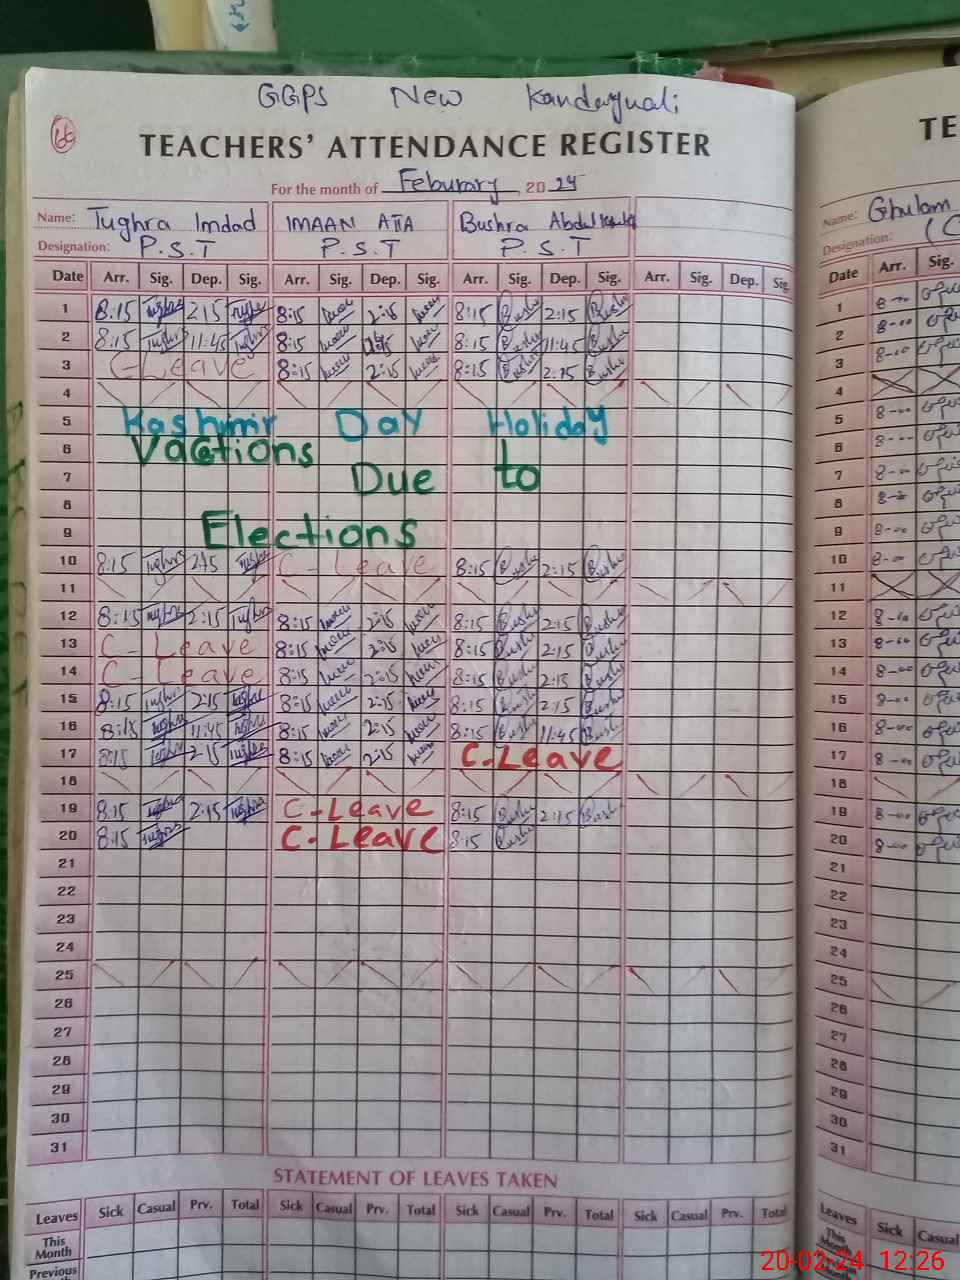 GGPS New Kandaywali
66
TEACHERS' ATTENDANCE REGISTER
For the month of Feburary, 2024
Name: Tughra Imdad IMAAN ATTA Bushra Abdul
Designation: P.S.T P.S.T P.S.T
Date Arr. Sig. Dep. Sig. Arr. Sig. Dep. Sig. Arr. Sig. Dep. Sig. Arr. Sig. Dep. Sig.
1 8:15 Tughra 2:15 Tughra 8:15 2:15 8:15 Bushra 2:15 Bushra
2 8:15 Tughra 11:45 Tughra 8:15 8:15 Bushra 11:45 Bushra
3 C-Leave 8:15 2:15 8:15 Bushra 2:15 Bushra
4
5 Kashmir Day Holiday
6 Vacations
7 Due to
8
9 Elections
10 8:15 Tughra 2:15 Tughra C-Leave 8:15 Bushra 2:15 Bushra
11
12 8:15 Tughra 2:15 Tughra 8:15 2:15 8:15 Bushra 2:15 Bushra
13 C-Leave 8:15 2:15 8:15 Bushra 2:15 Bushra
14 C-Leave 8:15 2:15 8:15 Bushra 2:15 Bushra
15 8:15 Tughra 2:15 Tughra 8:15 2:15 8:15 Bushra 2:15 Bushra
16 8:15 Tughra 11:45 Tughra 8:15 2:15 8:15 Bushra 11:45 Bushra
17 8:15 Tughra 2:15 Tughra 8:15 2:15 C-Leave
18
19 8:15 Tughra 2:15 Tughra C-Leave 8:15 Bushra 2:15 Bushra
20 8:15 Tughra C-Leave 8:15 Bushra
21
22
23
24
25
26
27
28
29
30
31
STATEMENT OF LEAVES TAKEN
Leaves Sick Casual Prv. Total Sick Casual Prv. Total Sick Casual Prv. Total Sick Casual Prv. Total
This Month
Previous
TE
Name: Ghulam
Designation:
Date Arr. Sig.
1 8-00
2 8-00
3 8-00
4
5 8-00
6 8-00
7 8-00
8 8-00
9 8-00
10 8-00
11
12 8-00
13 8-00
14 8-00
15 8-00
16 8-00
17 8-00
18
19 8-00
20 8-00
21
22
23
24
25
26
27
28
29
30
31
Leaves Sick Casual
This Month
Previous
20-02-24 12:26